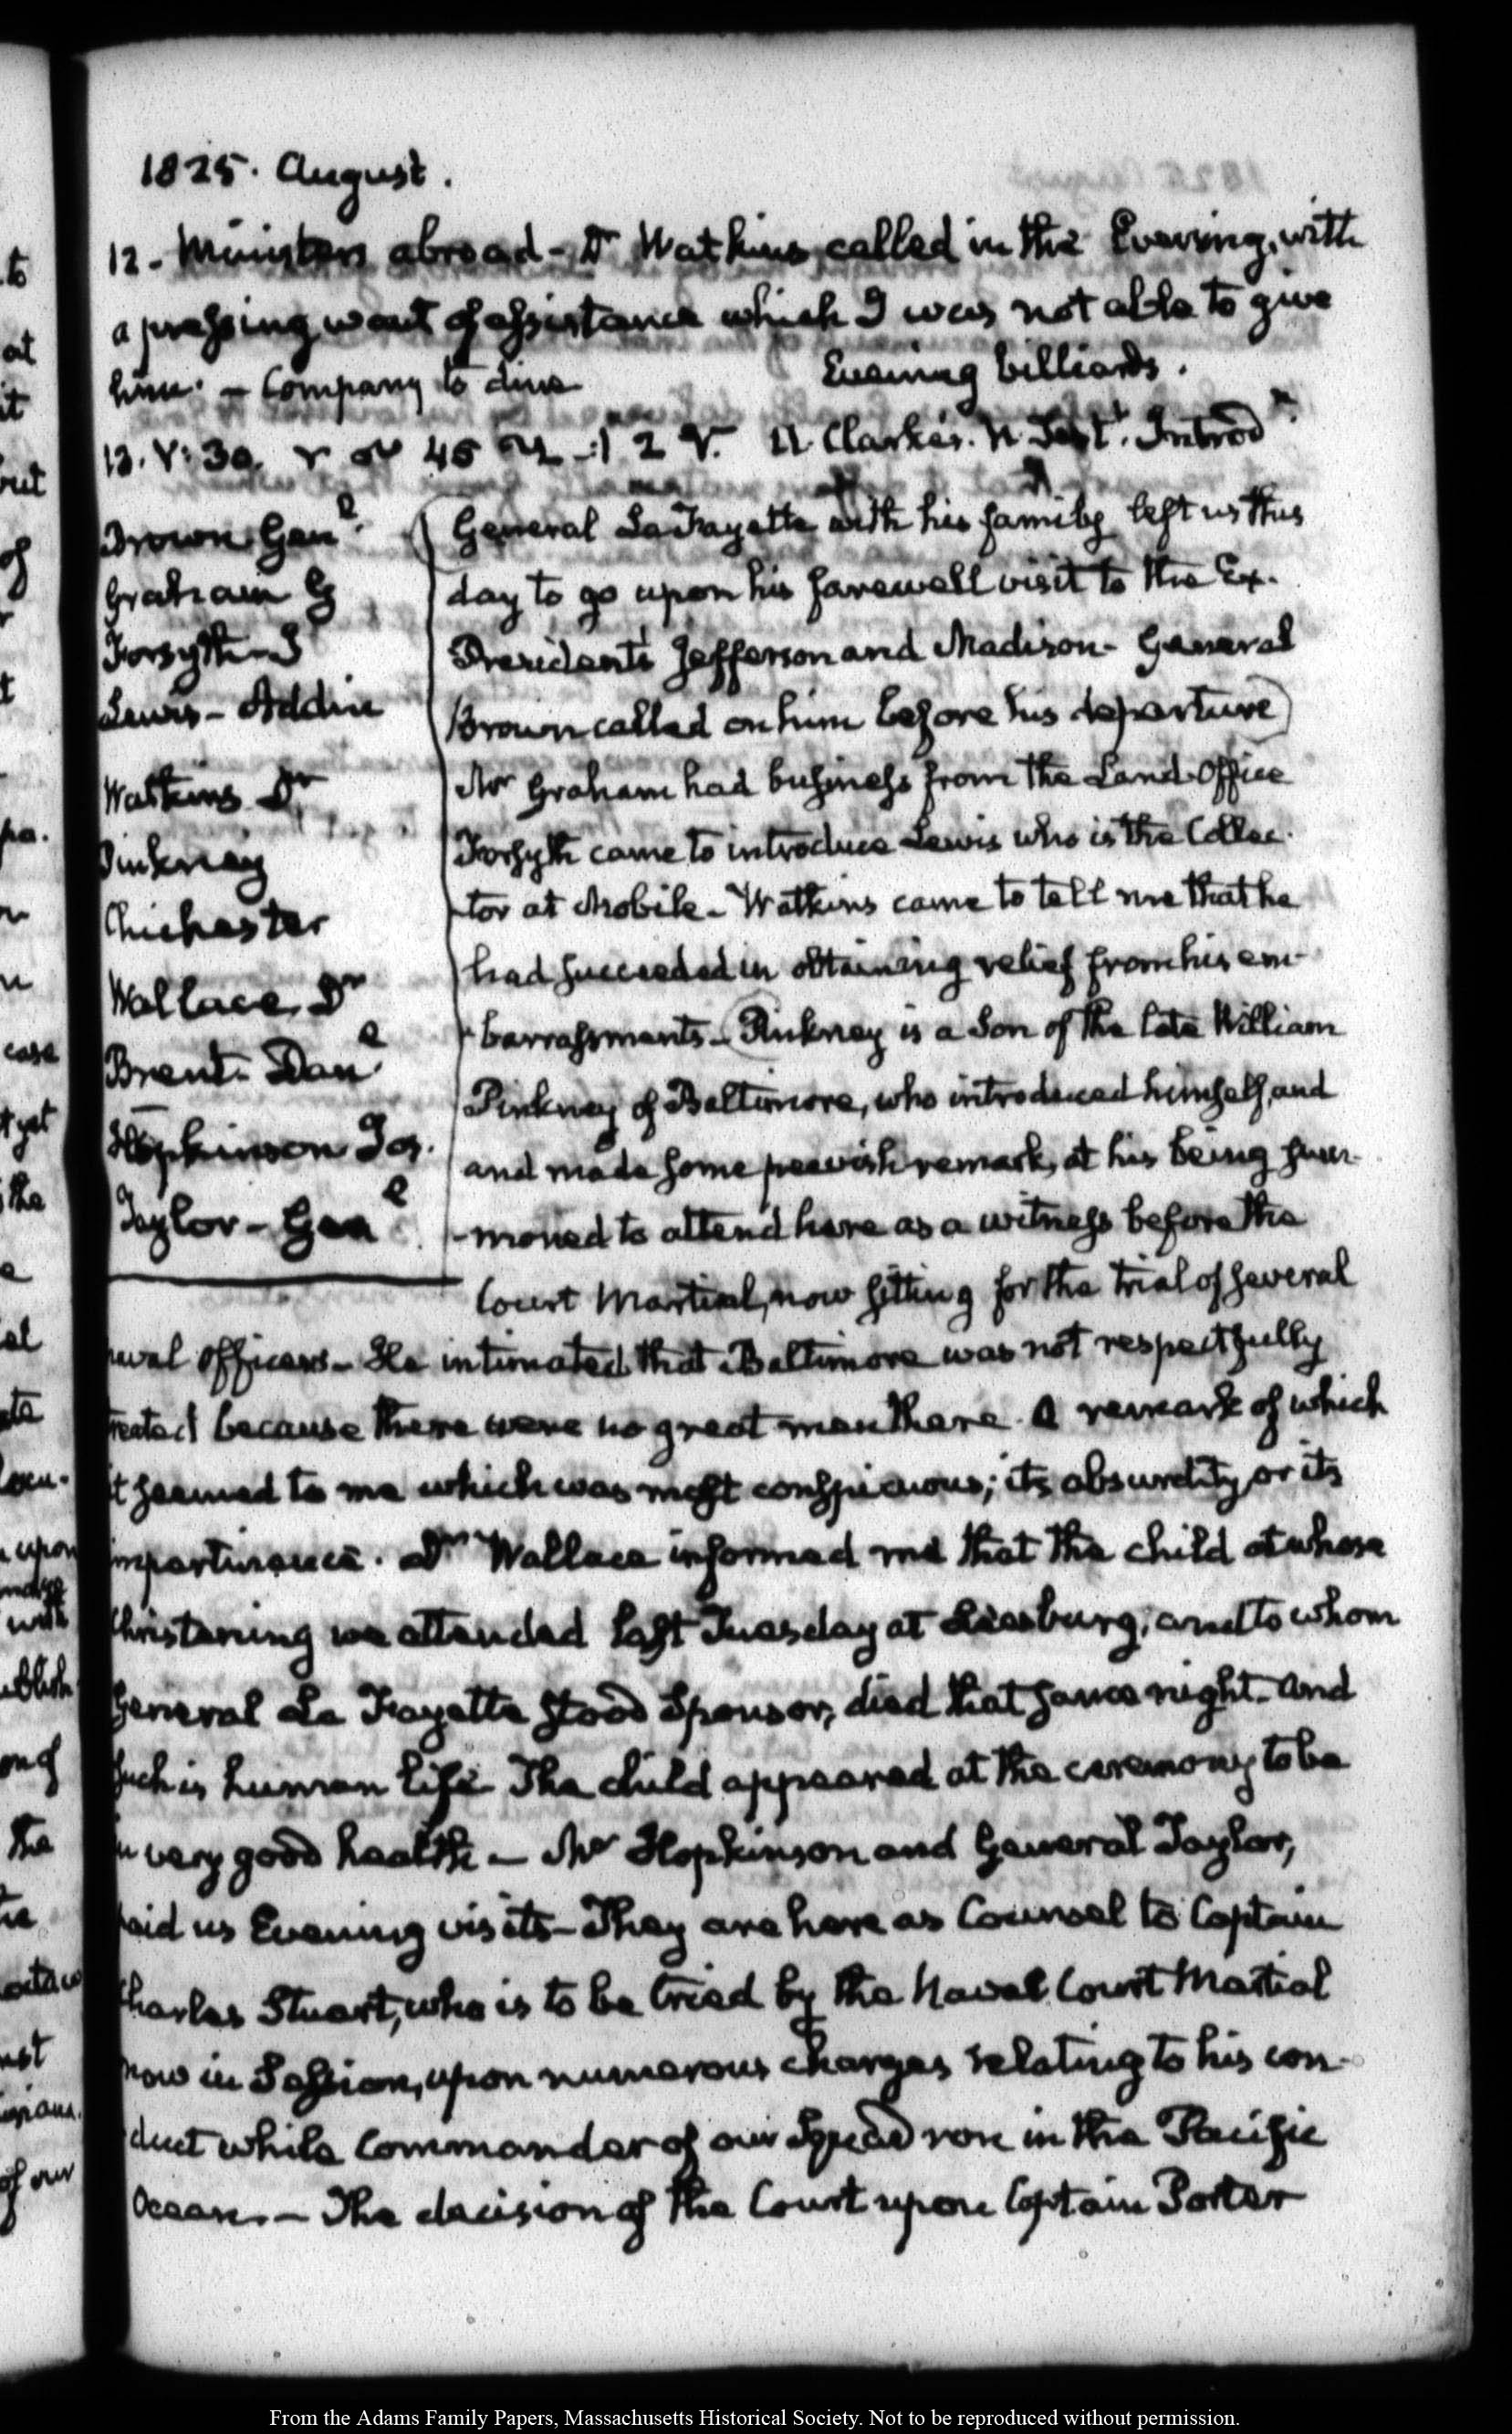 1825. August.
12. Ministers abroad - Dr Watkins called in the Evening, with
a pressing want of assistance which I was not able to give
him. - Company to dine
Evening billiards.
13. V: 30. 45 Clarke's. N. Test. Introdn.
Brown Genl.
Graham G
Forsyth - J
Lewis - Addin
Watkins Dr
Pinkney
Chichester
Wallace. Dr
Brent. Danl
Hopkinson Jos.
Taylor - Genl
General La Fayette with his family left us this
day to go upon his farewell visit to the Ex.
Presidents Jefferson and Madison - General
Brown called on him before his departure)
Mr Graham had business from the Land Office
Forsyth came to introduce Lewis who is the Collec-
tor at Mobile - Watkins came to tell me that he
had succeeded in obtaining relief from his em-
-barrassments - Pinkney is a Son of the late William
Pinkney of Baltimore, who introduced himself, and
and made some peevish remark, at his being sum-
-moned to attend here as a witness before the
Court Martial, now sitting for the trial of several
naval officers - He intimated that Baltimore was not respectfully
treated because there were no great men there. A remark of which
it seemed to me which was most conspicuous; its absurdity, or its
impertinence. Dr Wallace informed me that the child at whose
christening we attended last Tuesday at Leesburg, and to whom
General La Fayette stood Sponsor, died that same night - And
such is human life. The child appeared at the ceremony to be
in very good health - Mr Hopkinson and General Taylor,
paid us Evening visits - They are here as Counsel to Captain
Charles Stuart, who is to be tried by the Naval Court Martial
now in Session, upon numerous charges relating to his con-
duct while Commander of our Squadron in the Pacific
Ocean. - The decision of the Court upon Captain Porter
From the Adams Family Papers, Massachusetts Historical Society. Not to be reproduced without permission.